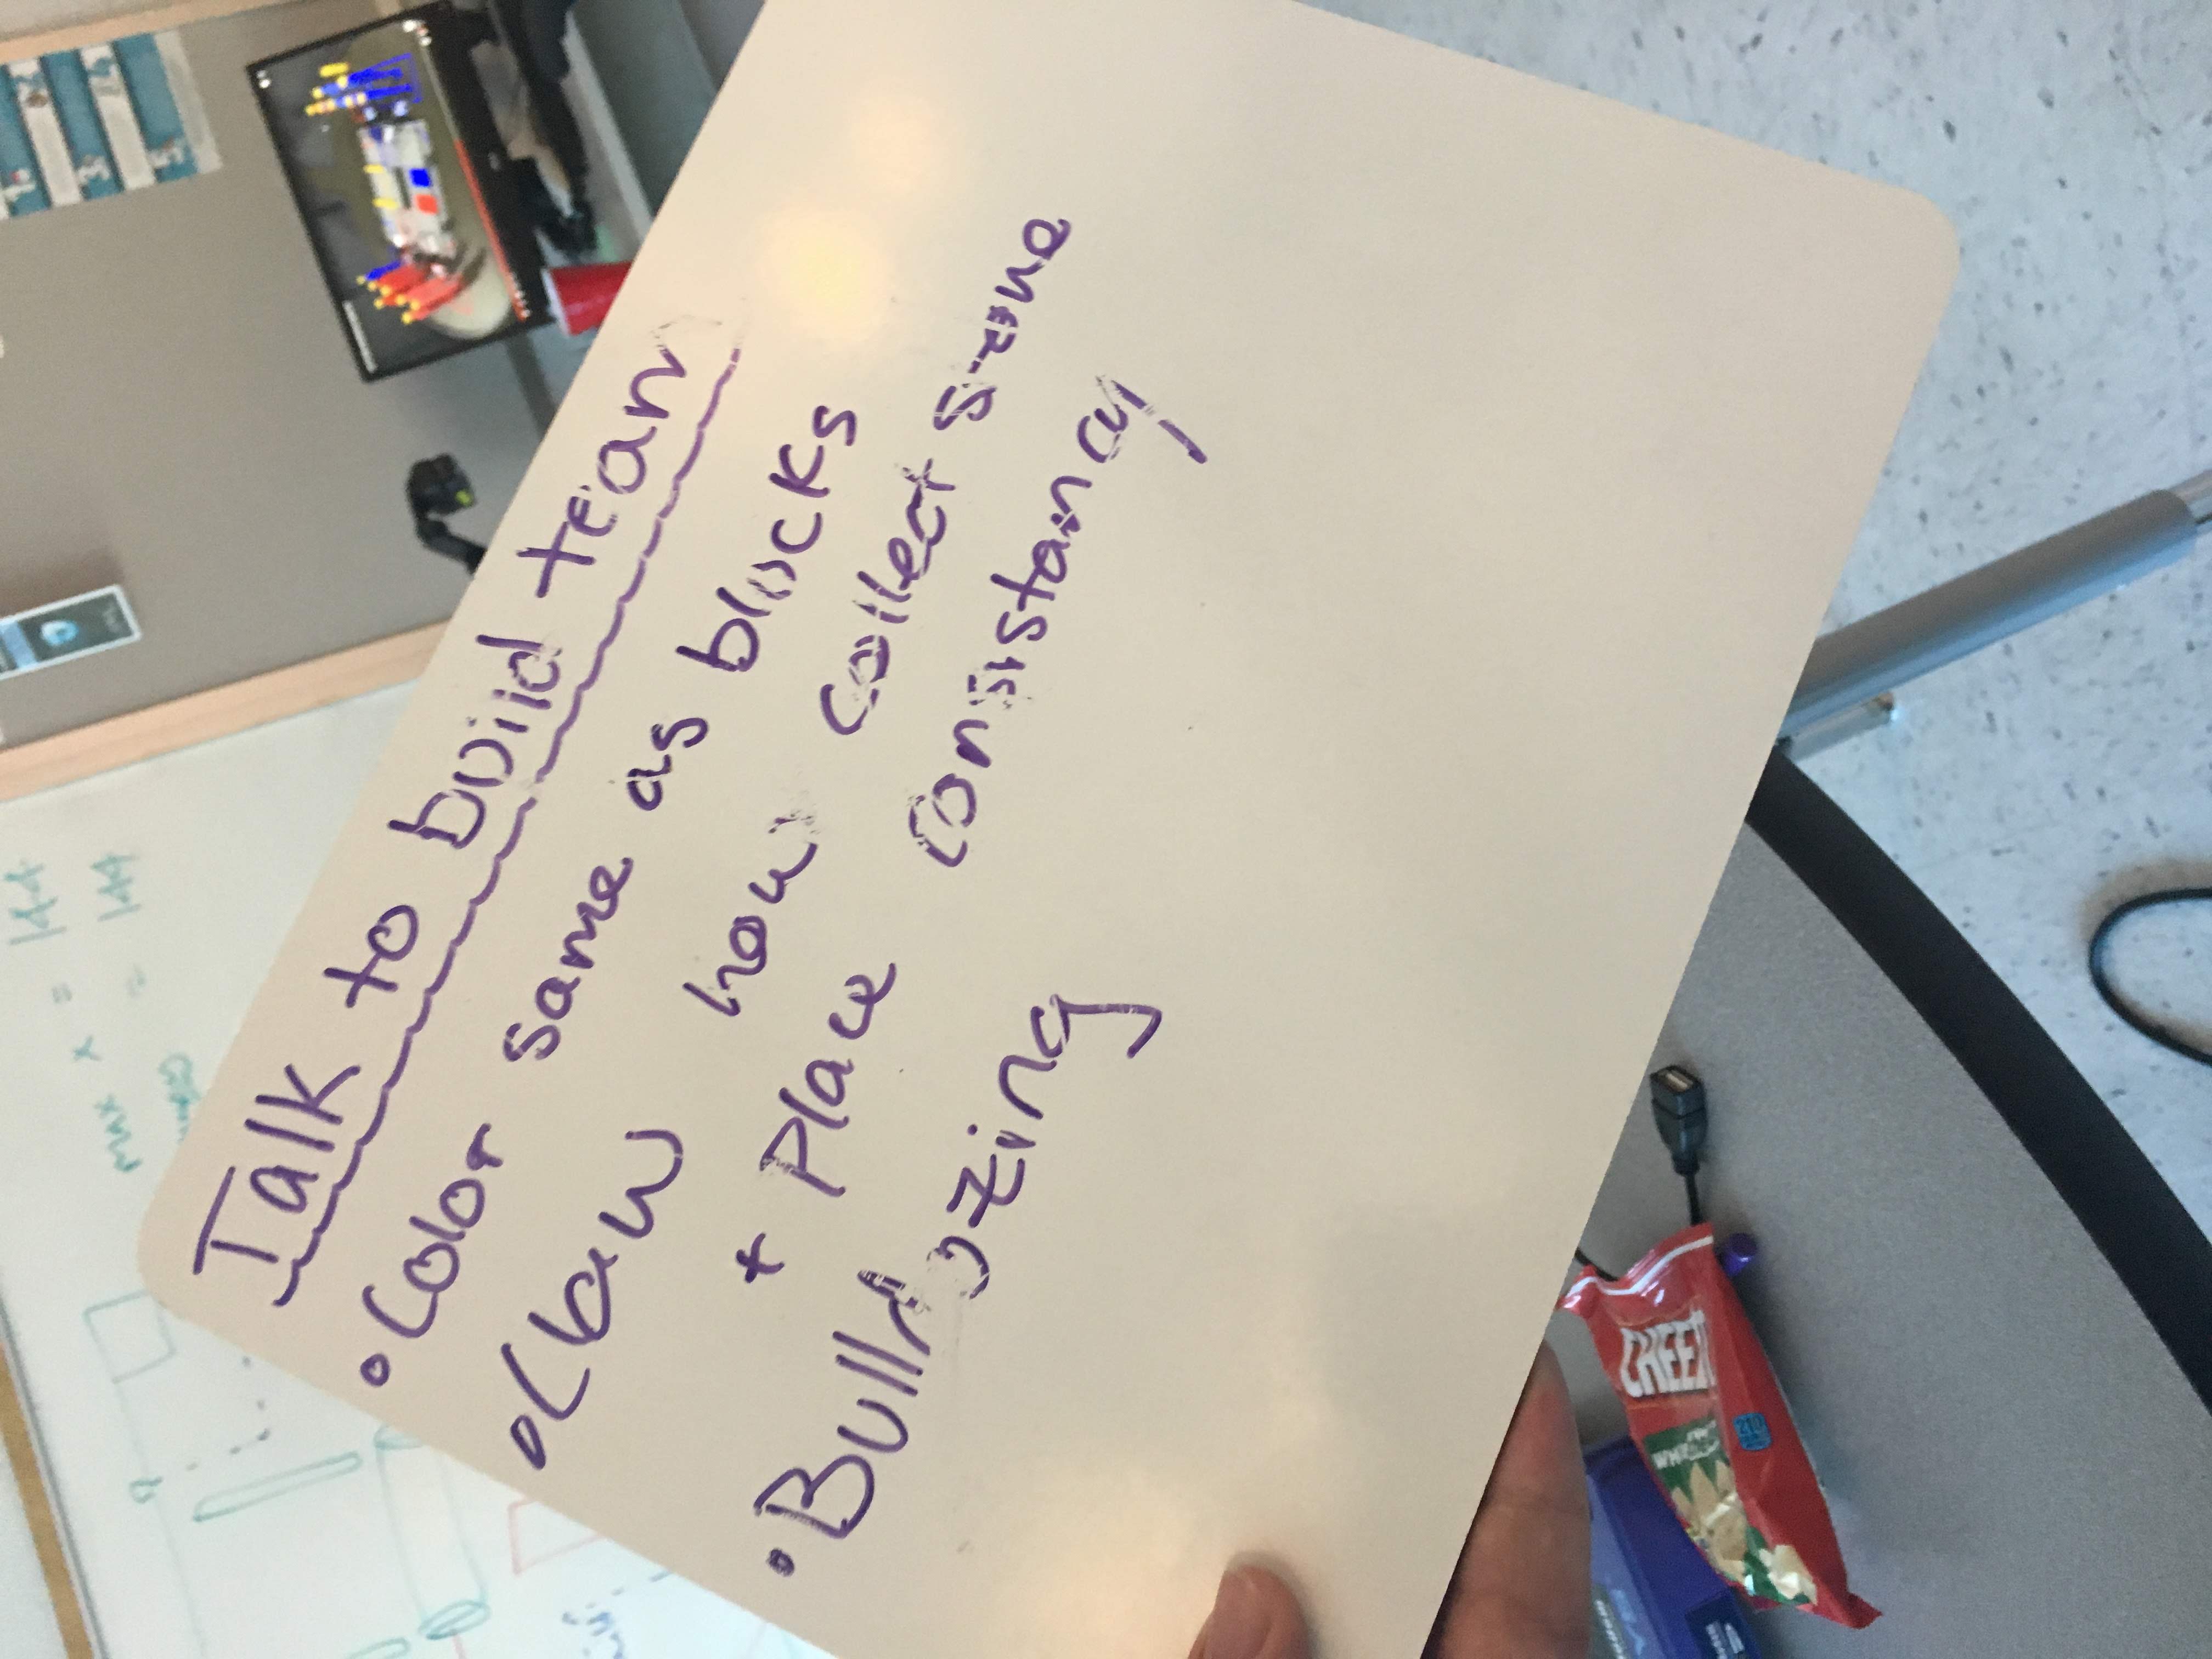 max x = 144
= 144
Talk to build team
• Color same as blocks
• Claw how collect stone
+ Place consistancy
• Bulldozing
CHEEZ